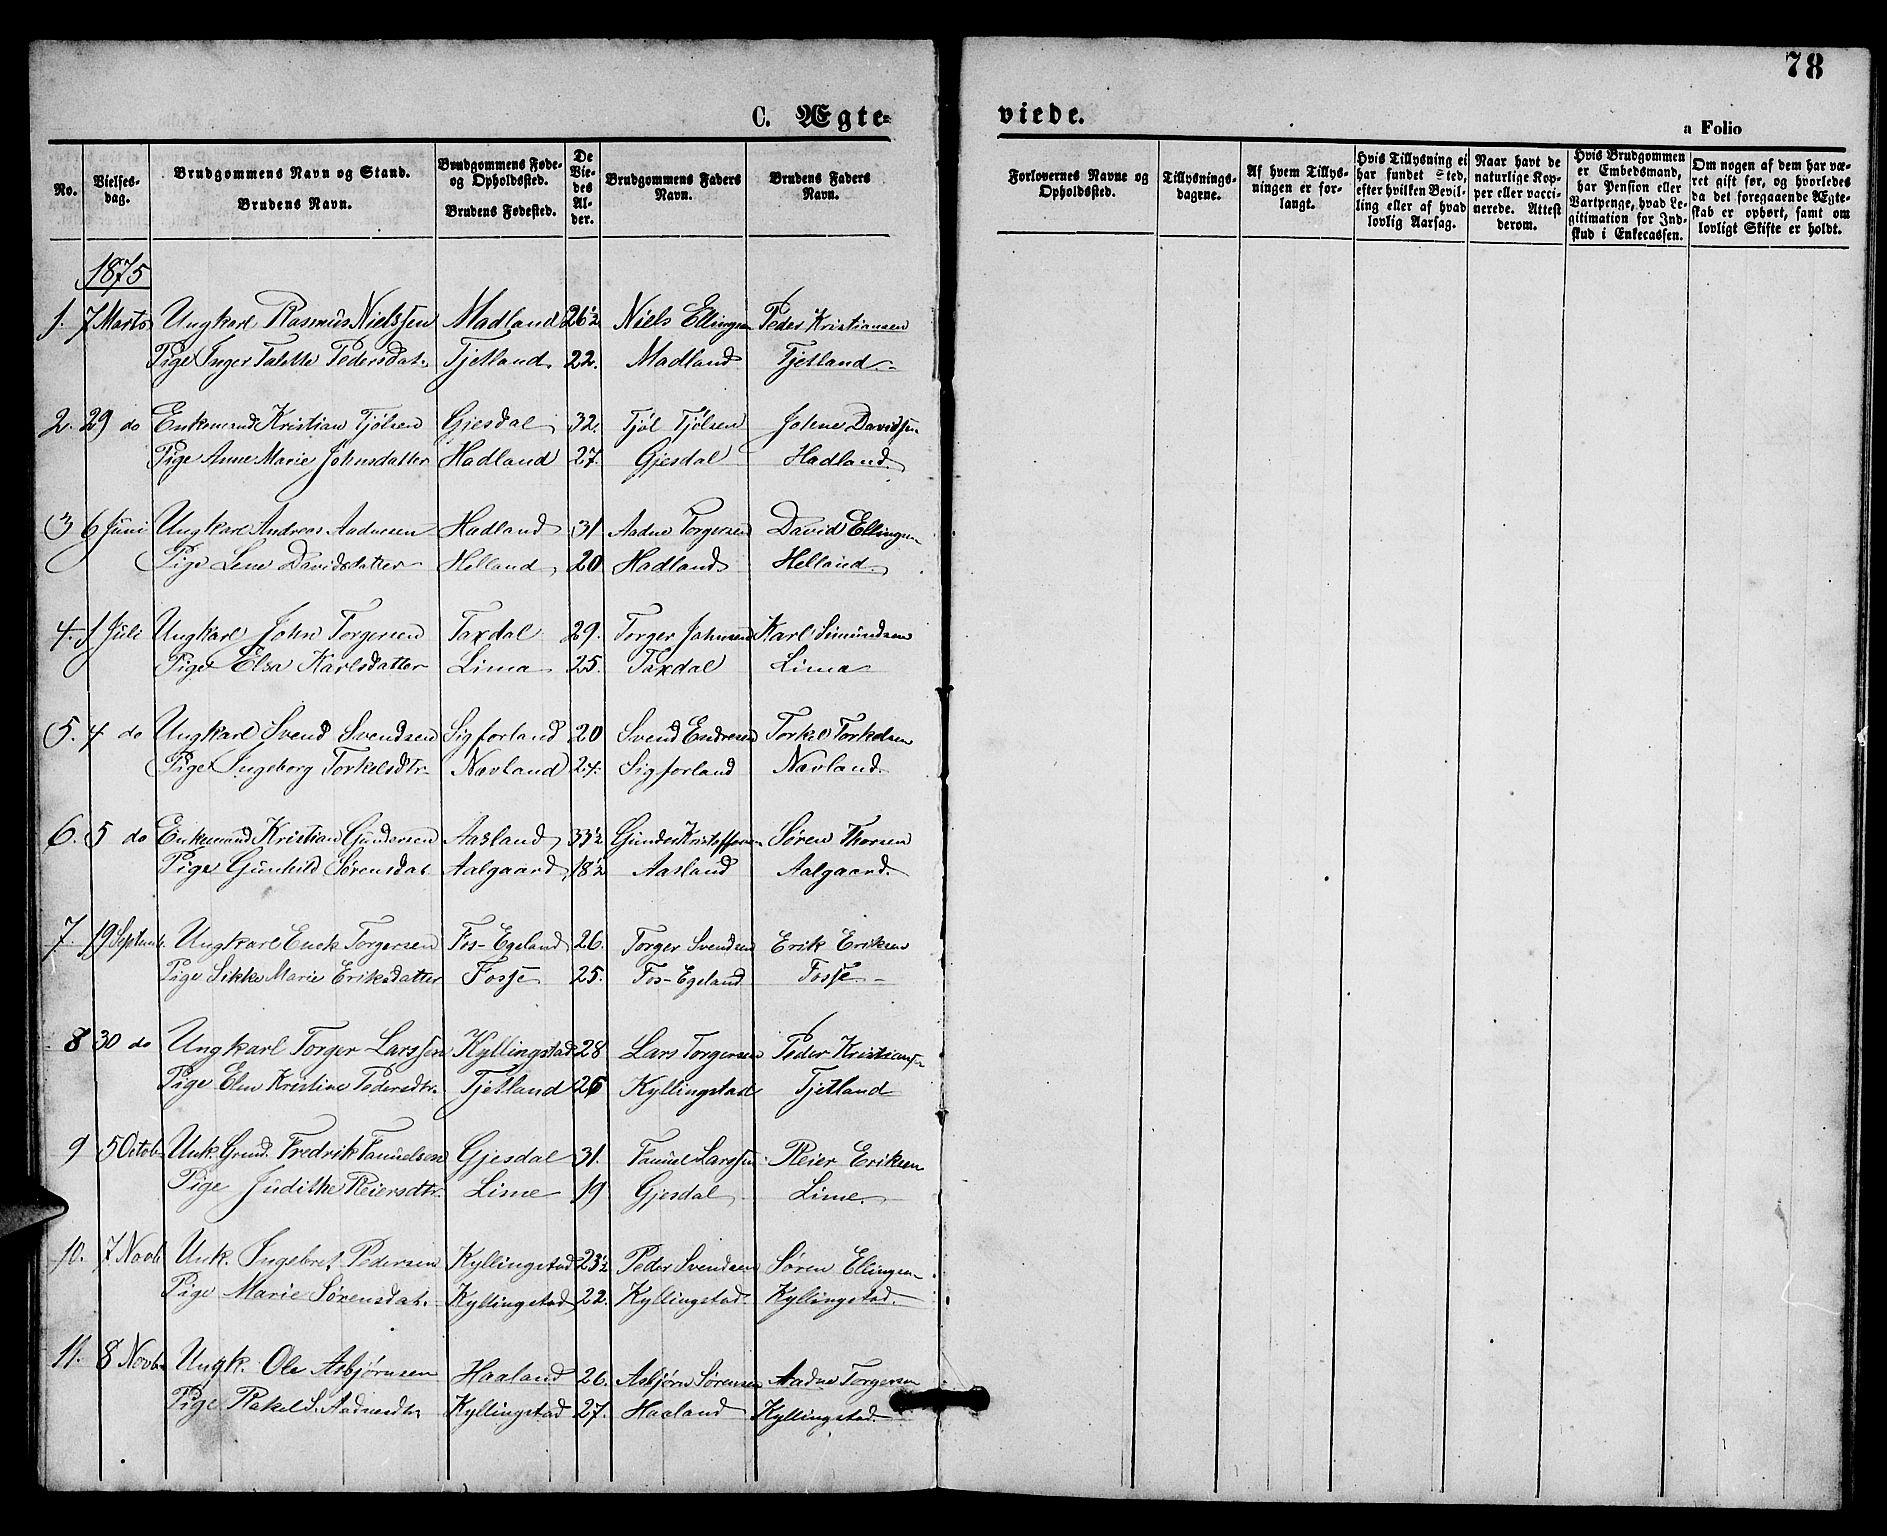 78
C. Ægte=
viede.
a Folio
No.
Vielses-
dag.
Brudgommens Navn og Stand.
Brudens Navn.
Brudgommens Føde-
og Opholdssted.
Brudens Fødested.
De
Vie-
des
Al-
der.
Brudgommens Faders
Navn.
Brudens Faders
Navn.
Forlovernes Navne og
Opholdssted.
Tillysnings-
dagene.
Af hvem Tillys-
ningen er for-
langt.
Hvis Tillysning ei
har fundet Sted,
efter hvilken Bevil-
ling eller af hvad
lovlig Aarsag.
Naar havt de
naturlige Kop-
per eller vacci-
nerede. Attest
derom.
Hvis Brudgommen
er Embedsmand,
har Pension eller
Vartpenge, hvad Le-
gitimation for Ind-
skud i Enkecassen.
Om nogen af dem har væ-
ret gift før, og hvorledes
da det foregaaende Ægte-
skab er ophørt, samt om
lovligt Skifte er holdt.
1875
1. 7 Marts Ungkarl Rasmus Nielssen Madland 26½ Niels Ellingsen Peder Kristiansen
Pige Inger Talette Pedersdat. Tjetland 22. Madland Tjetland
2. 29 do Enkemand Kristian Tjølsen Gjesdal 32. Tjøl Tjølsen Davidsen
Pige Anne Marie Johnsdatter Hadland 27. Gjesdal Hadland.
3 6 Juni Ungkarl Andreas Aadnesen Hadland 31 Aadne Torgersen David Ellingsen
Pige Lene Davidsdatter Helland 20 Hadland Helland
4. 1 Juli Ungkarl John Torgersen Taxdal 29. Torger Johnsen Karl Simundsen
Pige Elsa Karlsdatter Lima 25. Taxdal Lima
5. 4 do Ungkarl Svend Svendsen Sigforland 20 Svend Endresen Torkel Torkelsen
Pige Ingeborg Torkelsdtr. Navland 24. Sigforland Navland
6. 5 do Enkemand Kristian Gundersen Aasland 33½ Gunder Kristoffersen Søren Thorsen
Pige Gunhild Sørensdat. Aalgaard 18½ Aasland Aalgaard.
7. 19 Septemb. Ungkarl Enok Torgersen Fos-Egeland 26. Torger Svendsen Erik Eriksen
Pige Sikke Marie Eriksdatter Fosse 25. Fos-Egeland Fosse
8 30 do Ungkarl Torger Larssen Kyllingstad 28 Lars Torgersen Peder Kristiansen
Pige Elen Kristine Pedersdtr. Tjetland 26 Kyllingstad Tjetland
9 5 Octob. Unk. Fredrik Famuelsen Gjesdal 31. Famuel Larssen Reier Eriksen
Pige Judithe Reiersdtr. Lime 19 Gjesdal Lime.
10. 7 Novb Unk. Ingebret Pedersen Kyllingstad 23½ Peder Svendsen Søren Ellingsen
Pige Marie Sørensdat. Kyllingstad 22. Kyllingstad. Kyllingstad.
11. 8 Novb. Ungk. Ole Asbjørnsen Haaland 26. Asbjørn Sørensen Aadne Torgersen
Pige Rakel S. Aadnesdtr Kyllingstad 27. Haaland Kyllingstad.